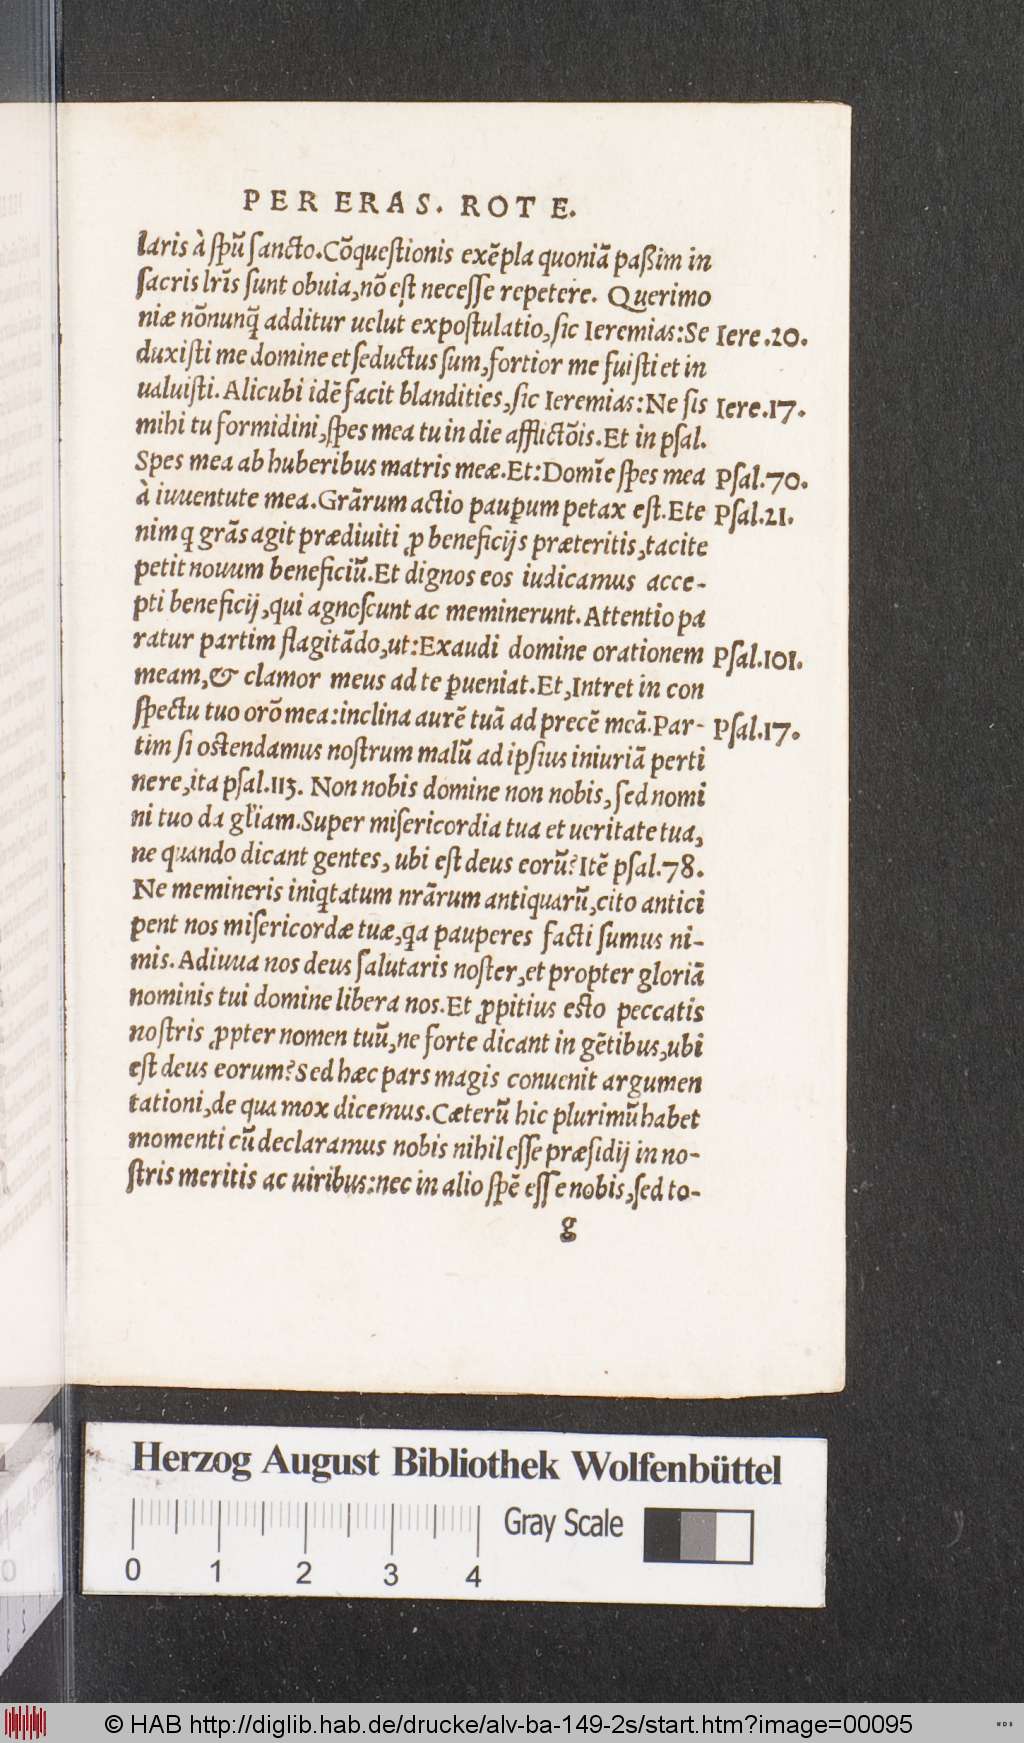 PER ERAS. ROTE.
laris à ſpũ ſancto. Cõqueſtionis exẽpla quoniã paßim in
ſacris lr̃is ſunt obuia, nõ eſt neceſſe repetere. Querimo
niæ nõnunq̃ additur uelut expoſtulatio, ſic Ieremias: Se Iere.20.
duxiſti me domine et ſeductus ſum, fortior me fuiſti et in
ualuiſti. Alicubi idẽ facit blandities, ſic Ieremias: Ne ſis Iere.17.
mihi tu formidini, ſpes mea tu in die afflictõis. Et in pſal.
Spes mea ab huberibus matris meæ. Et: Domĩe ſpes mea Pſal.70.
à iuuentute mea. Grãrum actio paup̱um petax eſt. Ete Pſal.21.
nim q grãs agit prædiuiti ꝓ beneficijs præteritis, tacite
petit nouum beneficiũ. Et dignos eos iudicamus acce-
pti beneficij, qui agnoſcunt ac meminerunt. Attentio pa
ratur partim flagitãdo, ut: Exaudi domine orationem Pſal.101.
meam, & clamor meus ad te ꝑueniat. Et, Intret in con
ſpectu tuo orõ mea: inclina aurẽ tuã ad precẽ meã. Par- Pſal.17.
tim ſi oſtendamus noſtrum malũ ad ipſius iniuriã perti
nere, ita pſal.113. Non nobis domine non nobis, ſed nomi
ni tuo da gl̃iam. Super miſericordia tua et ueritate tua,
ne quando dicant gentes, ubi eſt deus eorũ? Itẽ pſal.78.
Ne memineris iniq̃tatum nrãrum antiquarũ, cito antici
pent nos miſericordæ tuæ, qa pauperes facti ſumus ni-
mis. Adiuua nos deus ſalutaris noſter, et propter gloriã
nominis tui domine libera nos. Et ꝓpitius eſto peccatis
noſtris ꝓpter nomen tuũ, ne forte dicant in gẽtibus, ubi
eſt deus eorum? Sed hæc pars magis conuenit argumen
tationi, de qua mox dicemus. Cæterũ hic plurimũ habet
momenti cũ declaramus nobis nihil eſſe præſidij in no-
ſtris meritis ac uiribus: nec in alio ſpẽ eſſe nobis, ſed to-
g
Herzog August Bibliothek Wolfenbüttel
Gray Scale
0 1 2 3 4
© HAB http://diglib.hab.de/drucke/alv-ba-149-2s/start.htm?image=00095